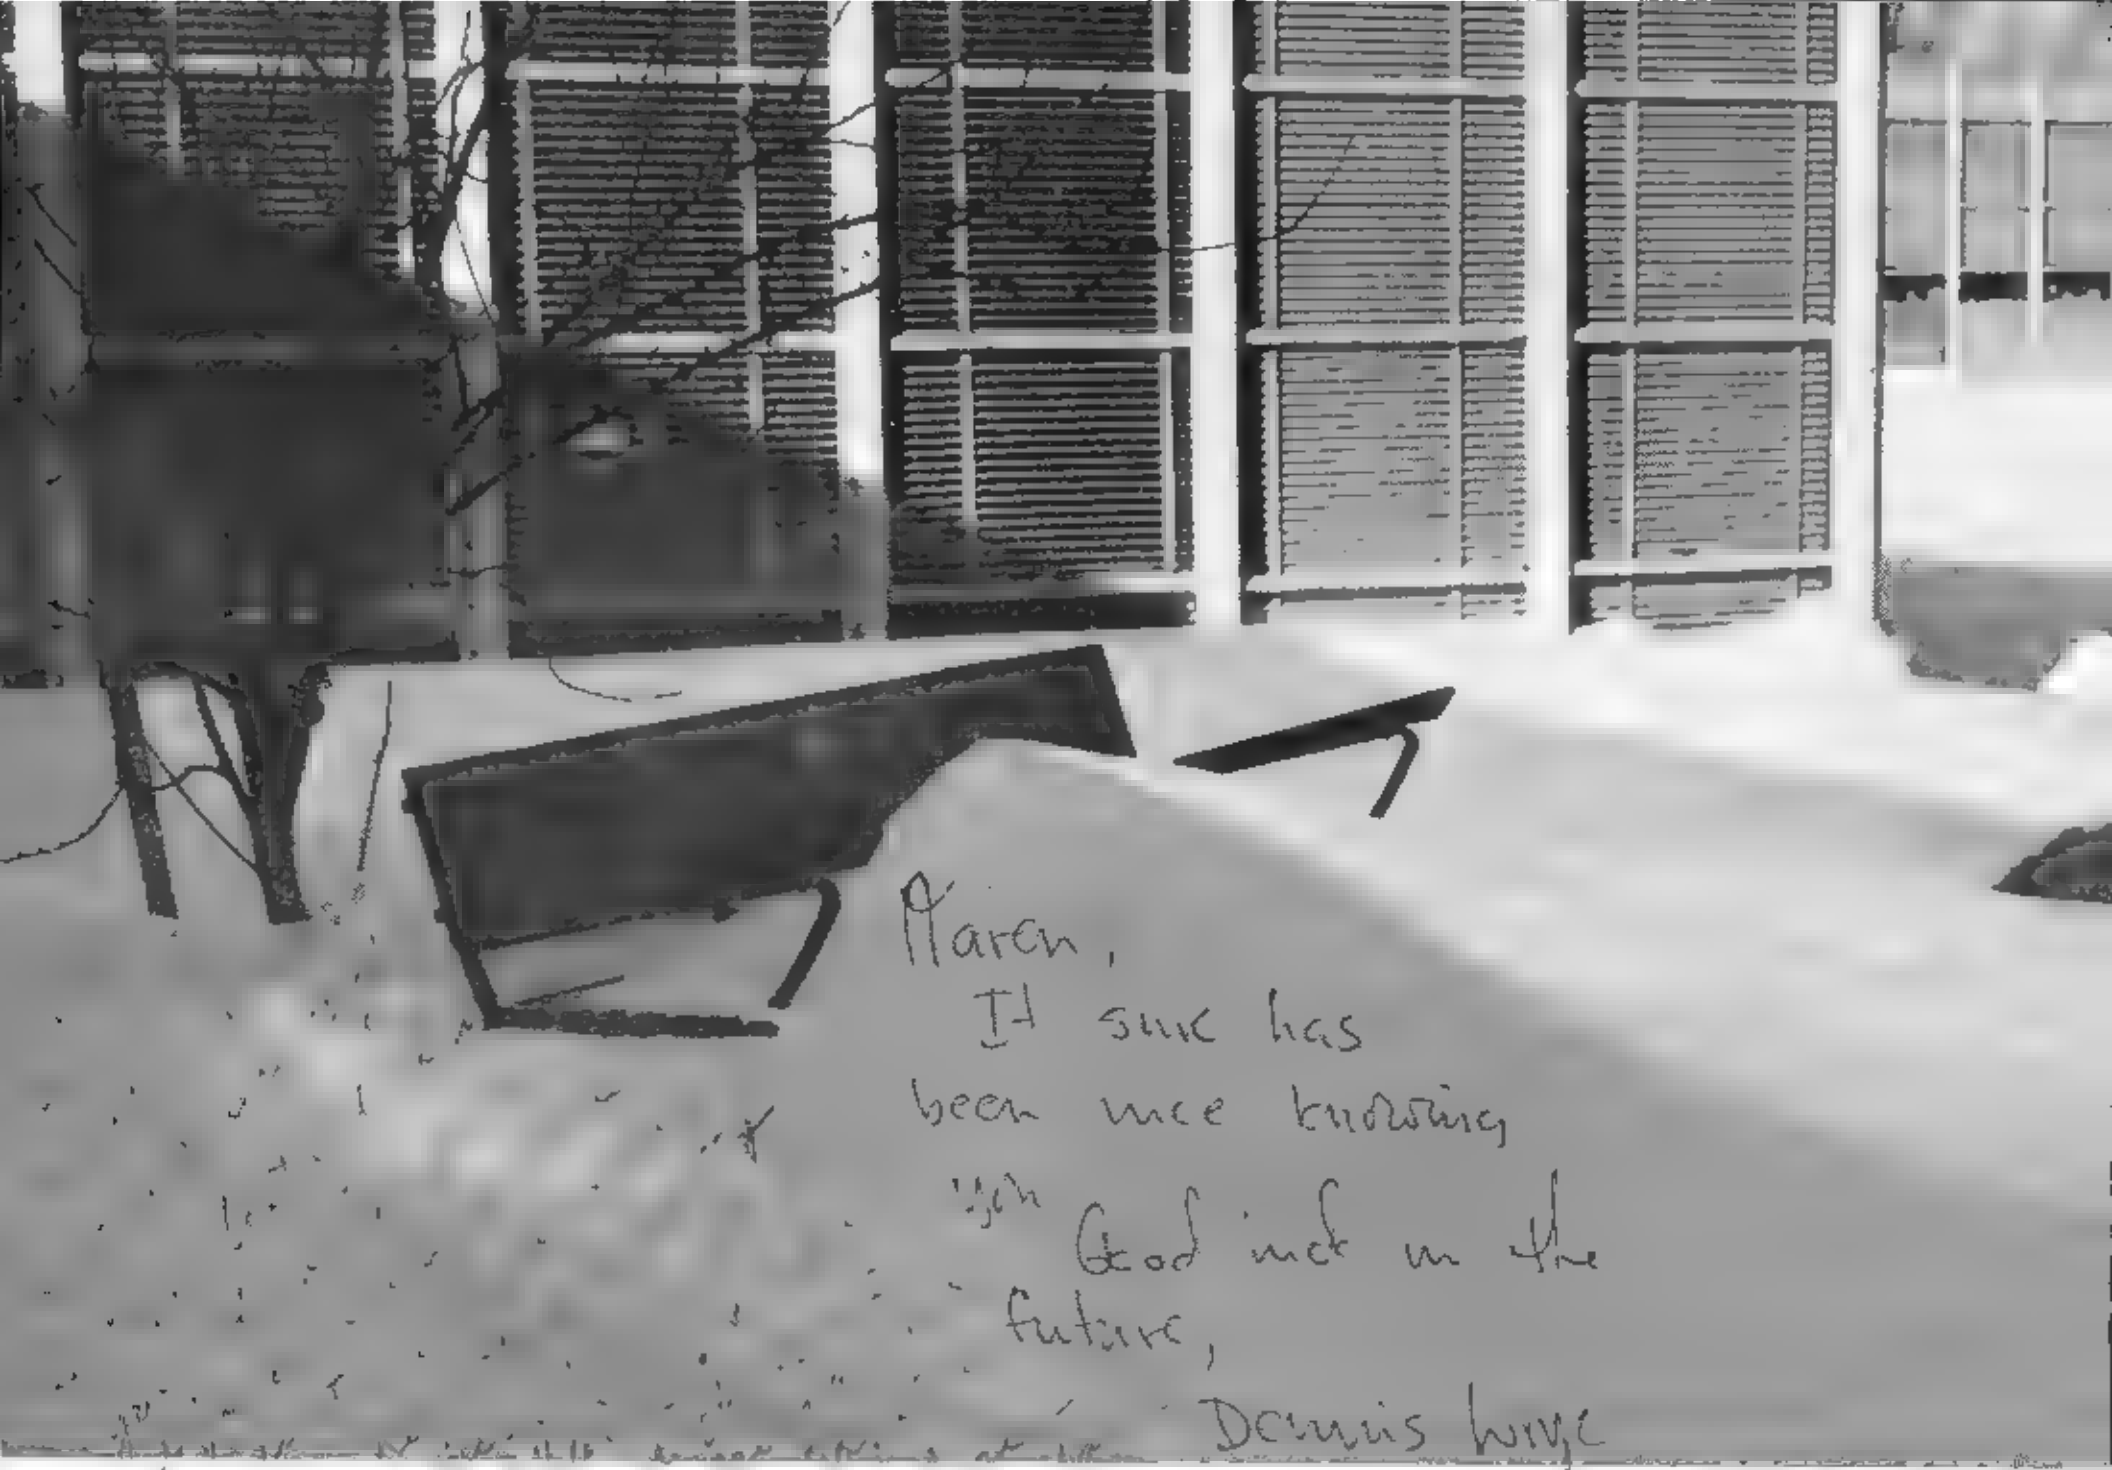 Maren,
It sure has
been nice knowing
you
Good luck in the
future,
Dennis